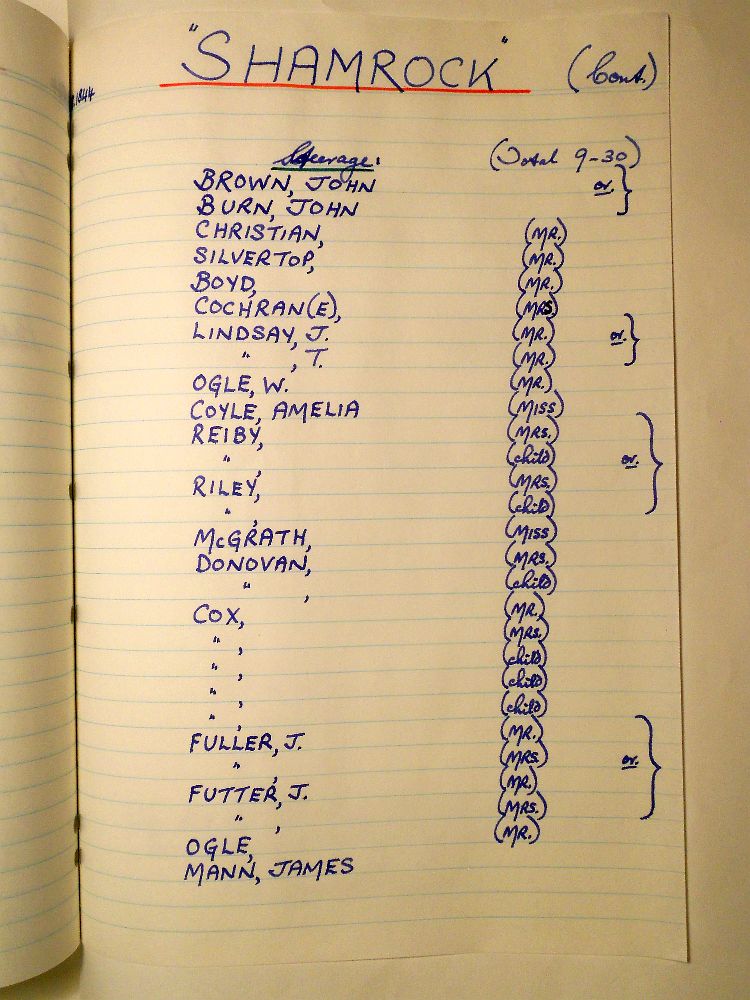 "SHAMROCK" (Cont.)
1844
Steerage: (Total 9-30)
BROWN, JOHN or. }
BURN, JOHN
CHRISTIAN, (MR.)
SILVERTOP, (MR.)
BOYD, (MR.)
COCHRAN(E), (MRS.)
LINDSAY, J. (MR.) or. }
" , T. (MR.)
OGLE, W. (MR.)
COYLE, AMELIA (MISS)
REIBY, (MRS.)
" , (child) or. }
RILEY, (MRS.)
" , (child)
McGRATH, (MISS)
DONOVAN, (MRS.)
" , (child)
COX, (MR.)
" , (MRS.)
" , (child)
" , (child)
" , (child)
FULLER, J. (MR.)
" , (MRS.) or. }
FUTTER, J. (MR.)
" , (MRS.)
OGLE, (MR.)
MANN, JAMES